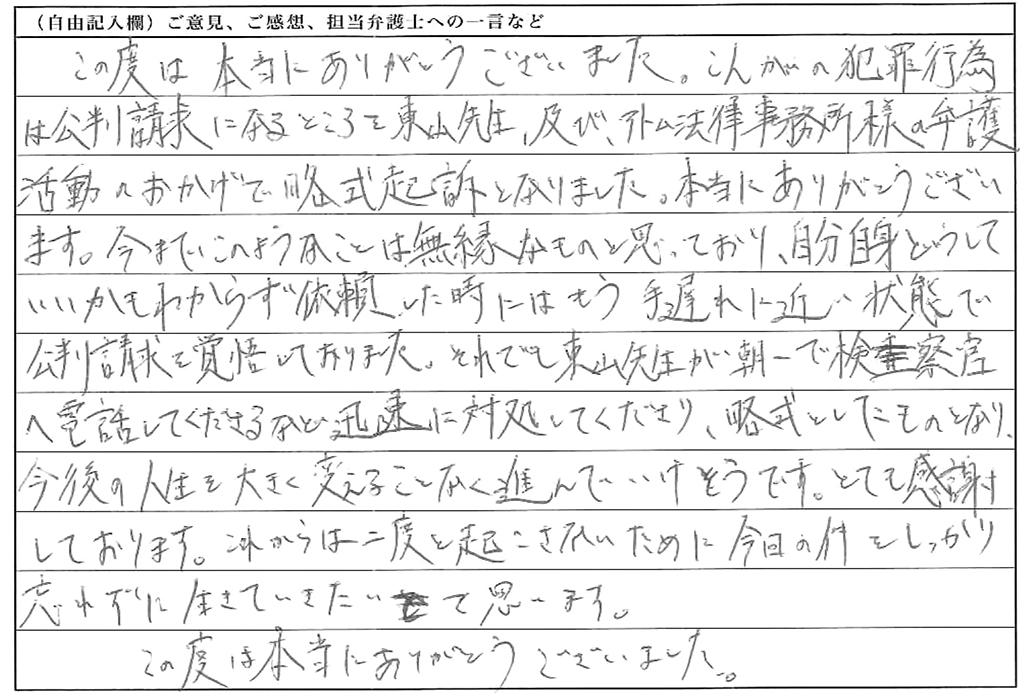 （自由記入欄）ご意見、ご感想、担当弁護士への一言など
この度は本当にありがとうございました。こんがいの犯罪行為
は公判請求になるところを東山先生、及び、アトム法律事務所様の弁護
活動のおかげで略式起訴となりました。本当にありがとうござい
ます。今までこのようなことは無縁なものと思っており、自分自身どうして
いいかもわからず依頼した時にはもう手遅れに近い状態で
公判請求を覚悟しておりました。それでも東山先生が朝一で検察官
へ電話してくださるなど迅速に対処してくださり、略式としたものとなり、
今後の人生を大きく変えることなく進んでいけそうです。とても感謝
しております。これからは二度と起こさないために今日の件をしっかり
忘れずに生きていきたいて思います。
この度は本当にありがとうございました。